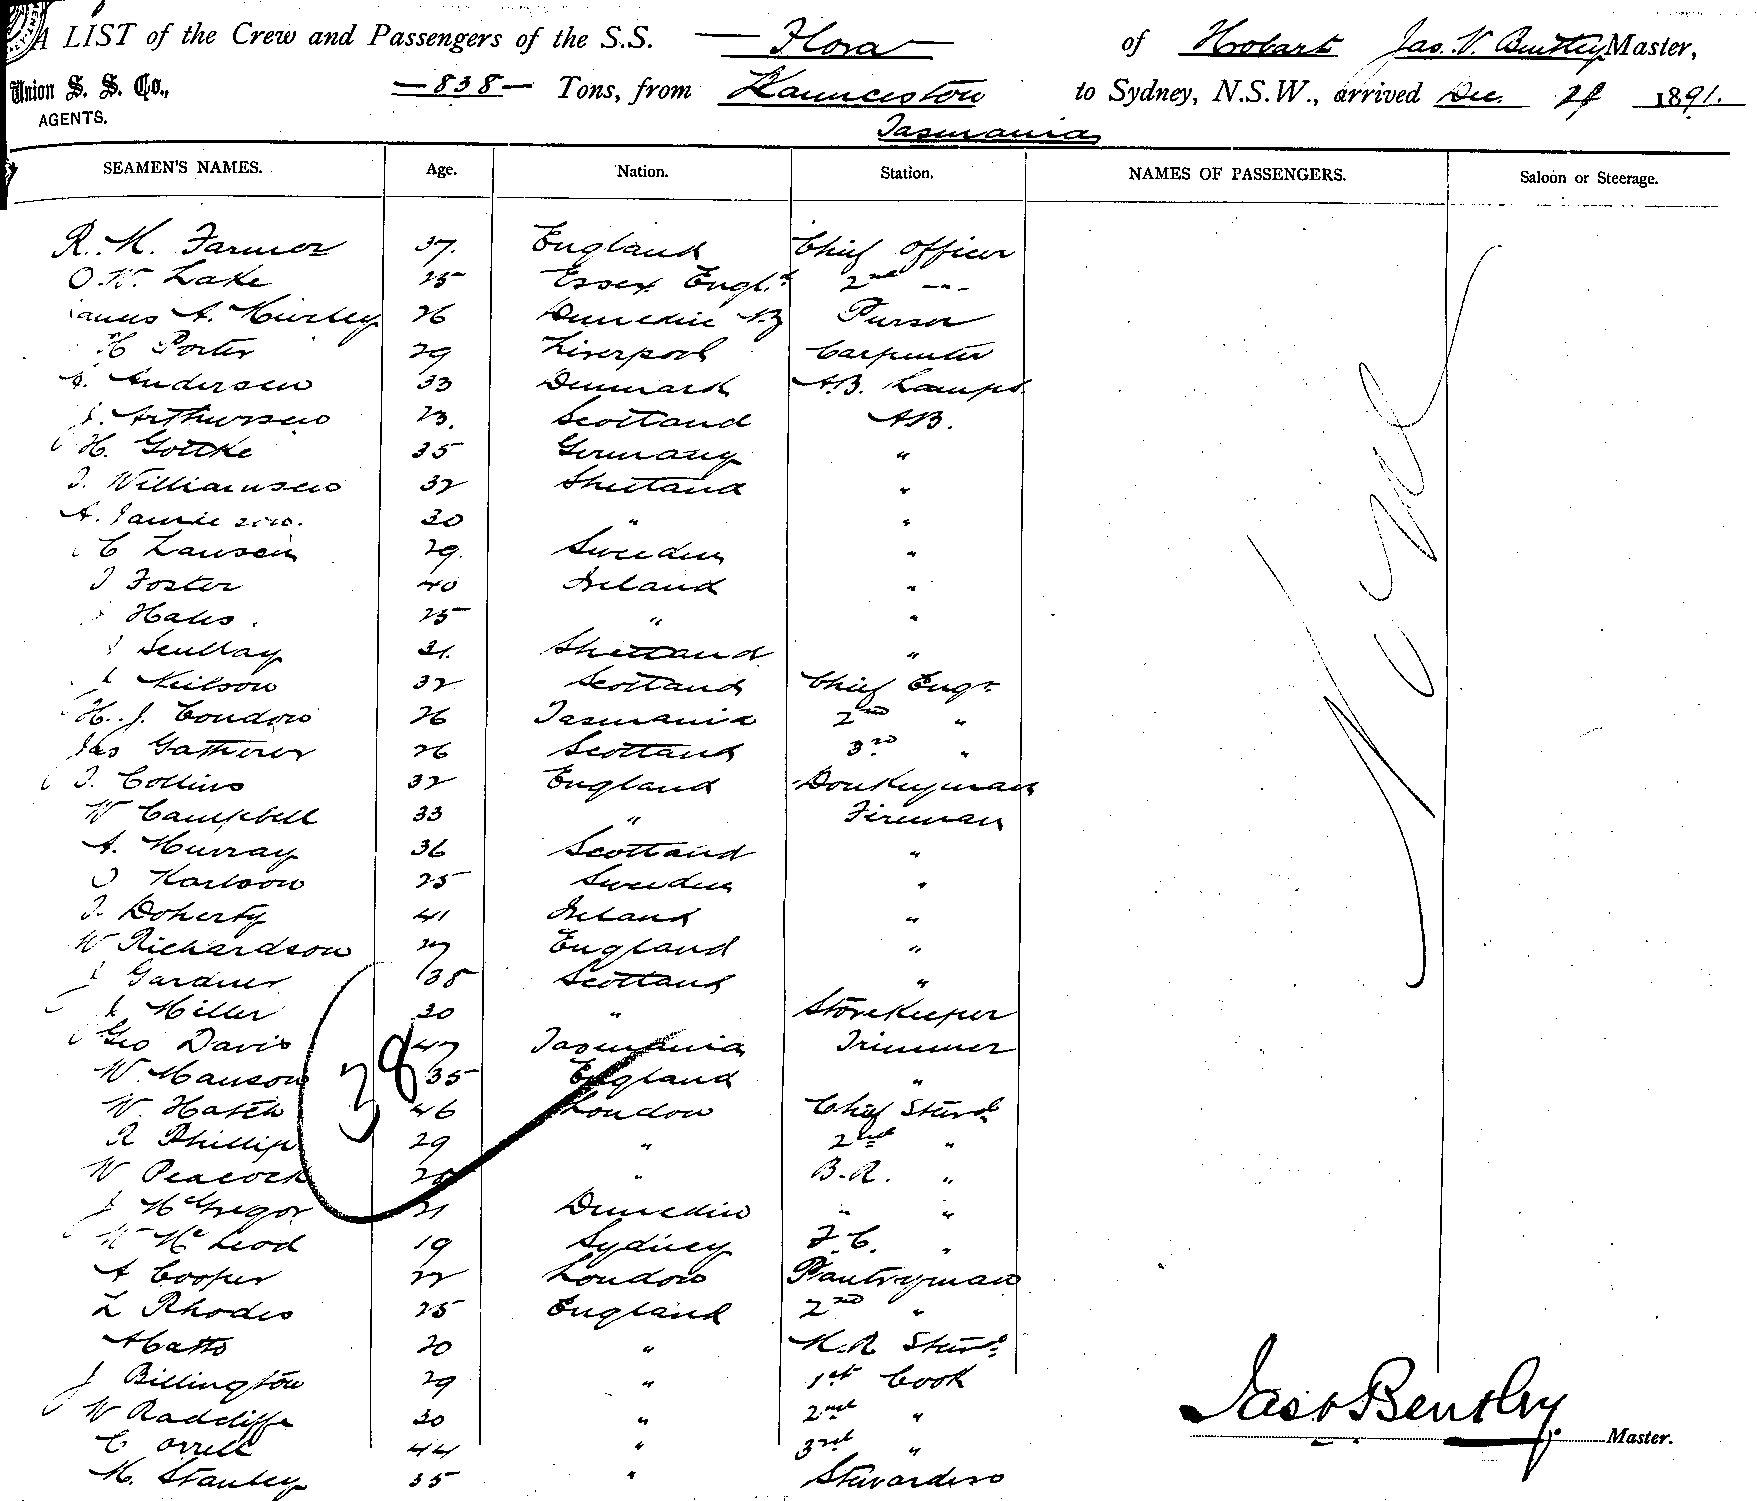 A LIST of the Crew and Passengers of the S.S. Flora of Hobart Jas. V. Bentley Master,
Union S. S. Co., — 838 — Tons, from Launceston to Sydney, N.S.W., arrived Dec. 1891.
AGENTS.
Tasmania
SEAMEN'S NAMES. Age. Nation. Station. NAMES OF PASSENGERS. Saloon or Steerage.
R. M. Farmer 37. England Chief Officer
O. W. Lake 25 Essex Engl.d 2nd "
A. Hurley 26 Dunedin NZ Purser
H Porter 29 Liverpool Carpenter
Andersen 33 Denmark A.B. Lamps
J. Arthurson 23. Scotland A.B.
H. Gottke 35 Germany "
T. Williamson 32 Shetland "
A. Jamieson. 30 " "
C Lansen 29. Sweden "
J Foster 40 Ireland "
Hales. 25 " "
J Scullay 31. Shetland "
J Neilson 32 Scotland Chief Engr
H. J. Condon 26 Tasmania 2nd "
Jas Gatherer 26 Scotland 3rd "
T. Collins 32 England Donkeyman
W Campbell 33 " Fireman
A. Murray 36 Scotland "
O Karlson 25 Sweden "
T. Doherty 41 Ireland "
W Richardson 27 England "
J Gardner 35 Scotland "
J Miller 30 " Storekeeper
Geo Davis 47 Tasmania Trimmer
W. Manson 35 England "
38
W. Hatch 46 London Chief Stewd
R Phillips 29 " 2nd "
W Peacock 20 " B.R. "
J McGregor 21 Dunedin " "
W McLeod 19 Sydney F.C. "
A Cooper 22 London Pantryman
L Rhodes 25 England 2nd "
A Catto 20 " M.R Stewd.
J Billington 29 " 1st Cook
W Radcliffe 30 " 2nd "
C Orrell 44 " 3rd "
M. Stanley 35 " Stewardess
Jas V Bentley
Master.